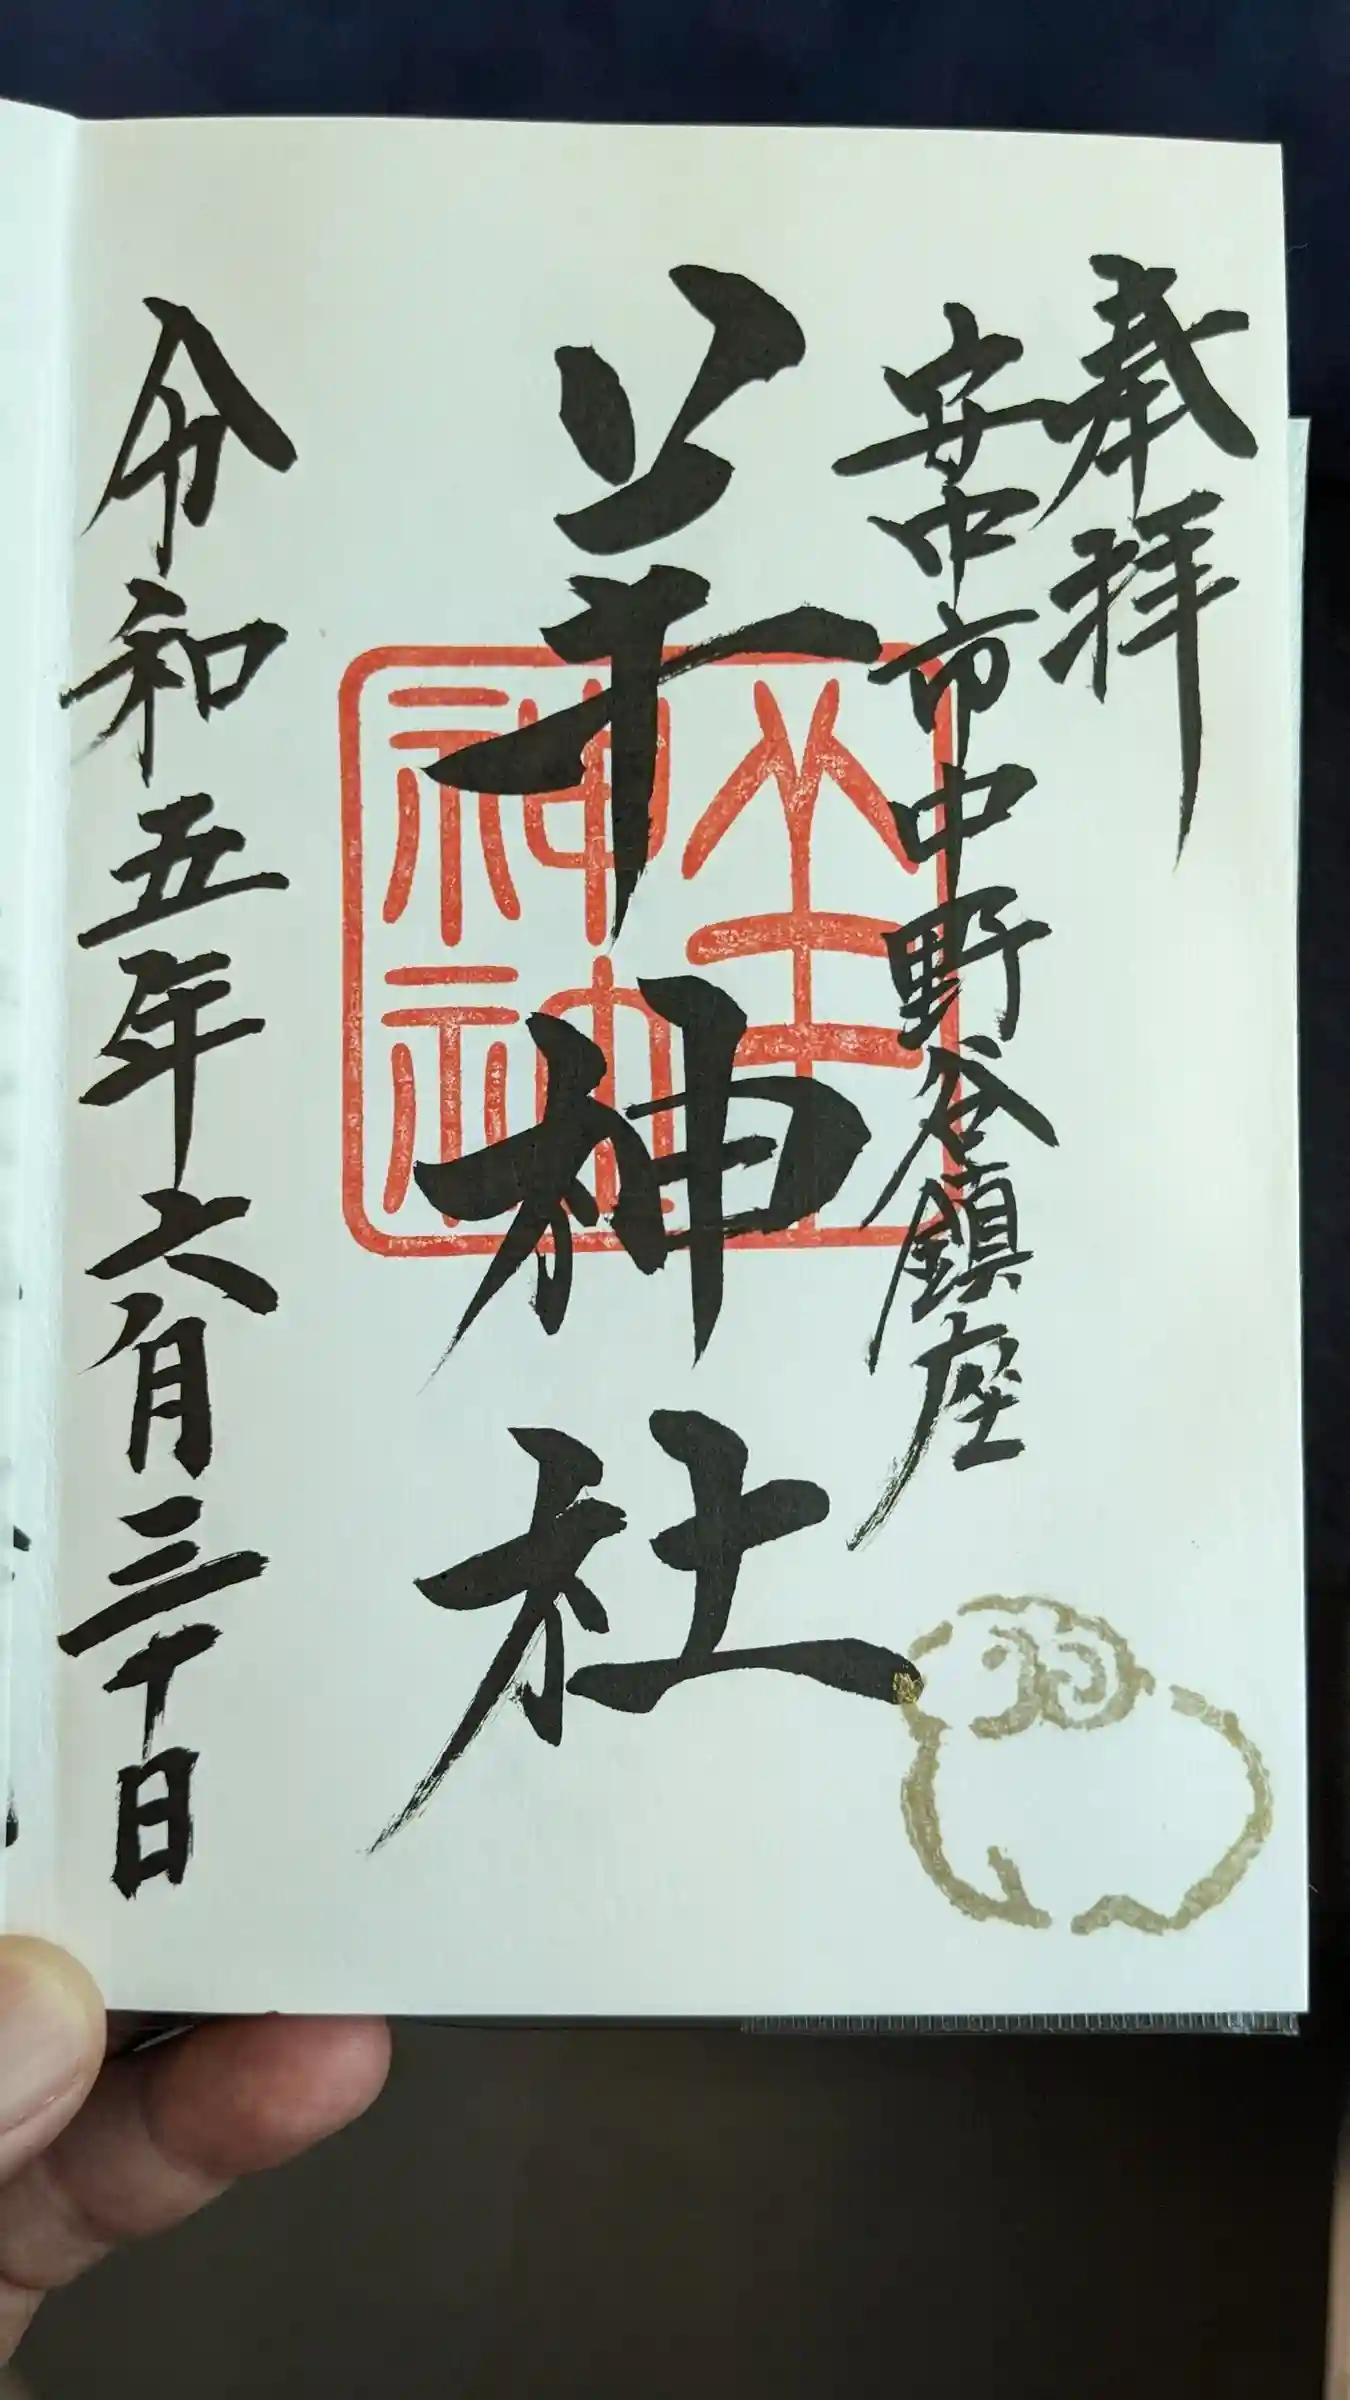 奉拝
安中市中野谷鎮座
羊神社
羊神社
令和五年六月三十日